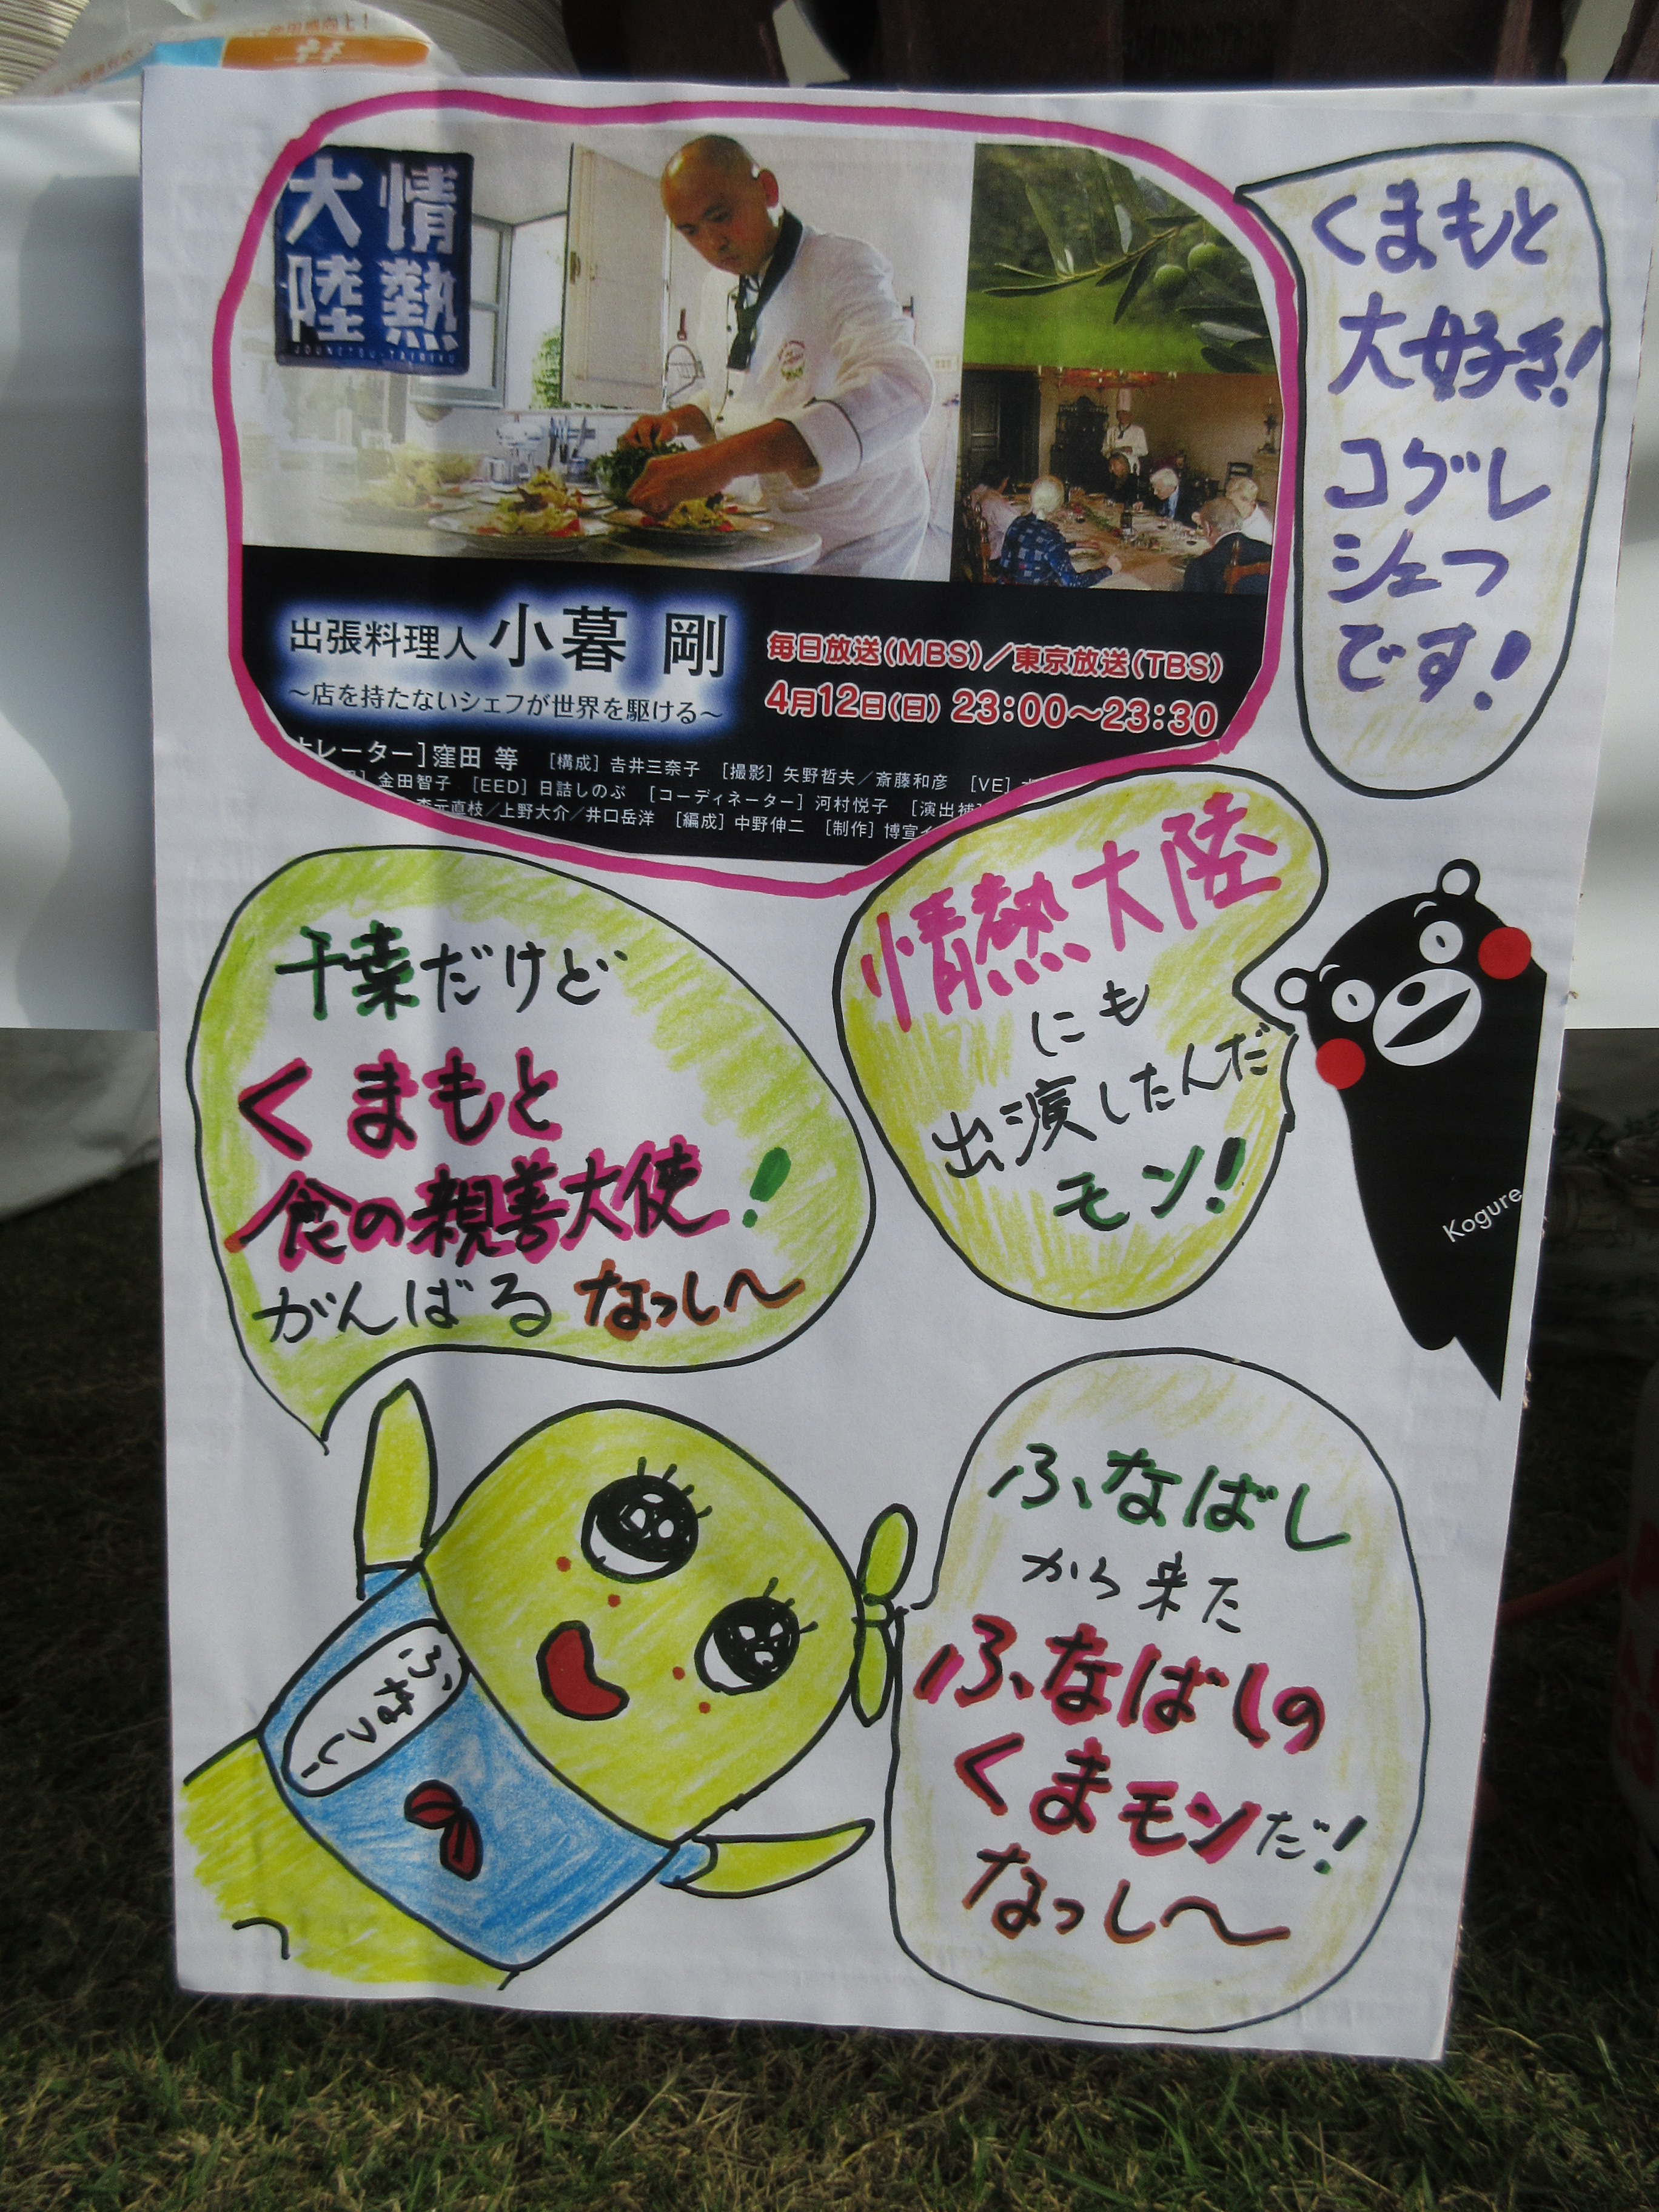 情熱
大陸
JOUNETSU-TAIRIKU
出張料理人 小暮 剛
～店を持たないシェフが世界を駆ける～
毎日放送(MBS)／東京放送(TBS)
4月12日(日) 23:00～23:30
レーター]窪田 等 [構成] 吉井三奈子 [撮影] 矢野哲夫／斎藤和彦 [VE]
金田智子 [EED] 日詰しのぶ [コーディネーター] 河村悦子 [演出補
李元直枝／上野大介／井口岳洋 [編成] 中野伸二 [制作] 博宣
くまもと
大好き!
コグレ
シェフ
です!
情熱大陸
にも
出演したんだ
モン!
Kogure
千葉だけど
くまもと
食の親善大使!
がんばるなっし～
ふなばし
から来た
ふなばしの
くまモンだ!
なっし～
ふなっしー